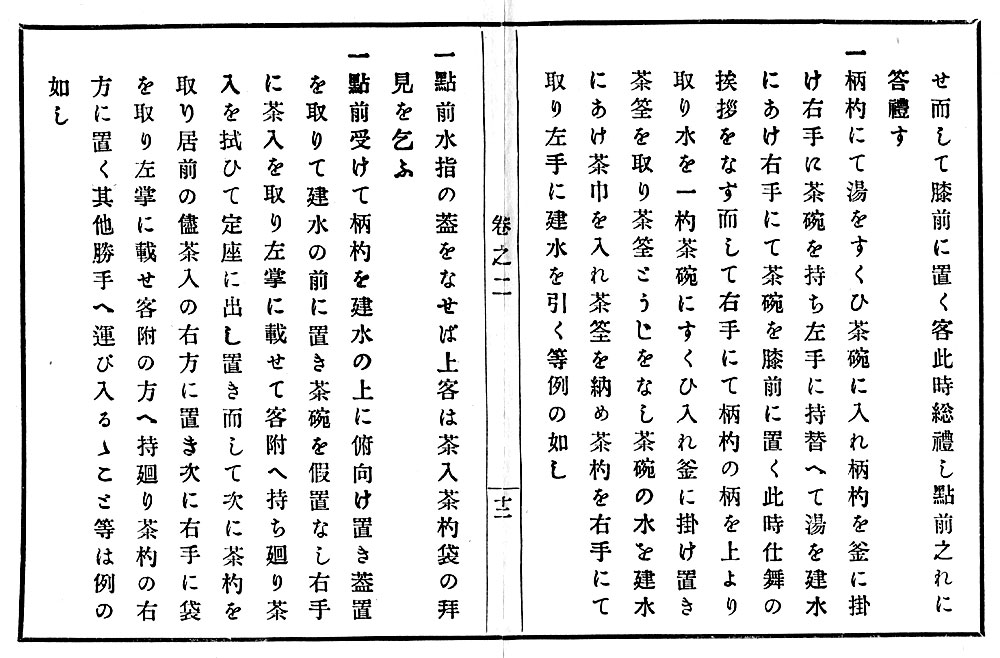 せ而して膝前に置く客此時総禮し點前之れに
答禮す
一柄杓にて湯をすくひ茶碗に入れ柄杓を釜に掛
け右手に茶碗を持ち左手に持替へて湯を建水
にあけ右手にて茶碗を膝前に置く此時仕舞の
挨拶をなす而して右手にて柄杓の柄を上より
取り水を一杓茶碗にすくひ入れ釜に掛け置き
茶筌を取り茶筌とうじをなし茶碗の水を建水
にあけ茶巾を入れ茶筌を納め茶杓を右手にて
取り左手に建水を引く等例の如し
卷之二
十二
一點前水指の葢をなせば上客は茶入茶杓袋の拜
見を乞ふ
一點前受けて柄杓を建水の上に俯向け置き葢置
を取りて建水の前に置き茶碗を假置なし右手
に茶入を取り左掌に載せて客附へ持ち廻り茶
入を拭ひて定座に出し置き而して次に茶杓を
取り居前の儘茶入の右方に置き次に右手に袋
を取り左掌に載せ客附の方へ持廻り茶杓の右
方に置く其他勝手へ運び入るゝこと等は例の
如し